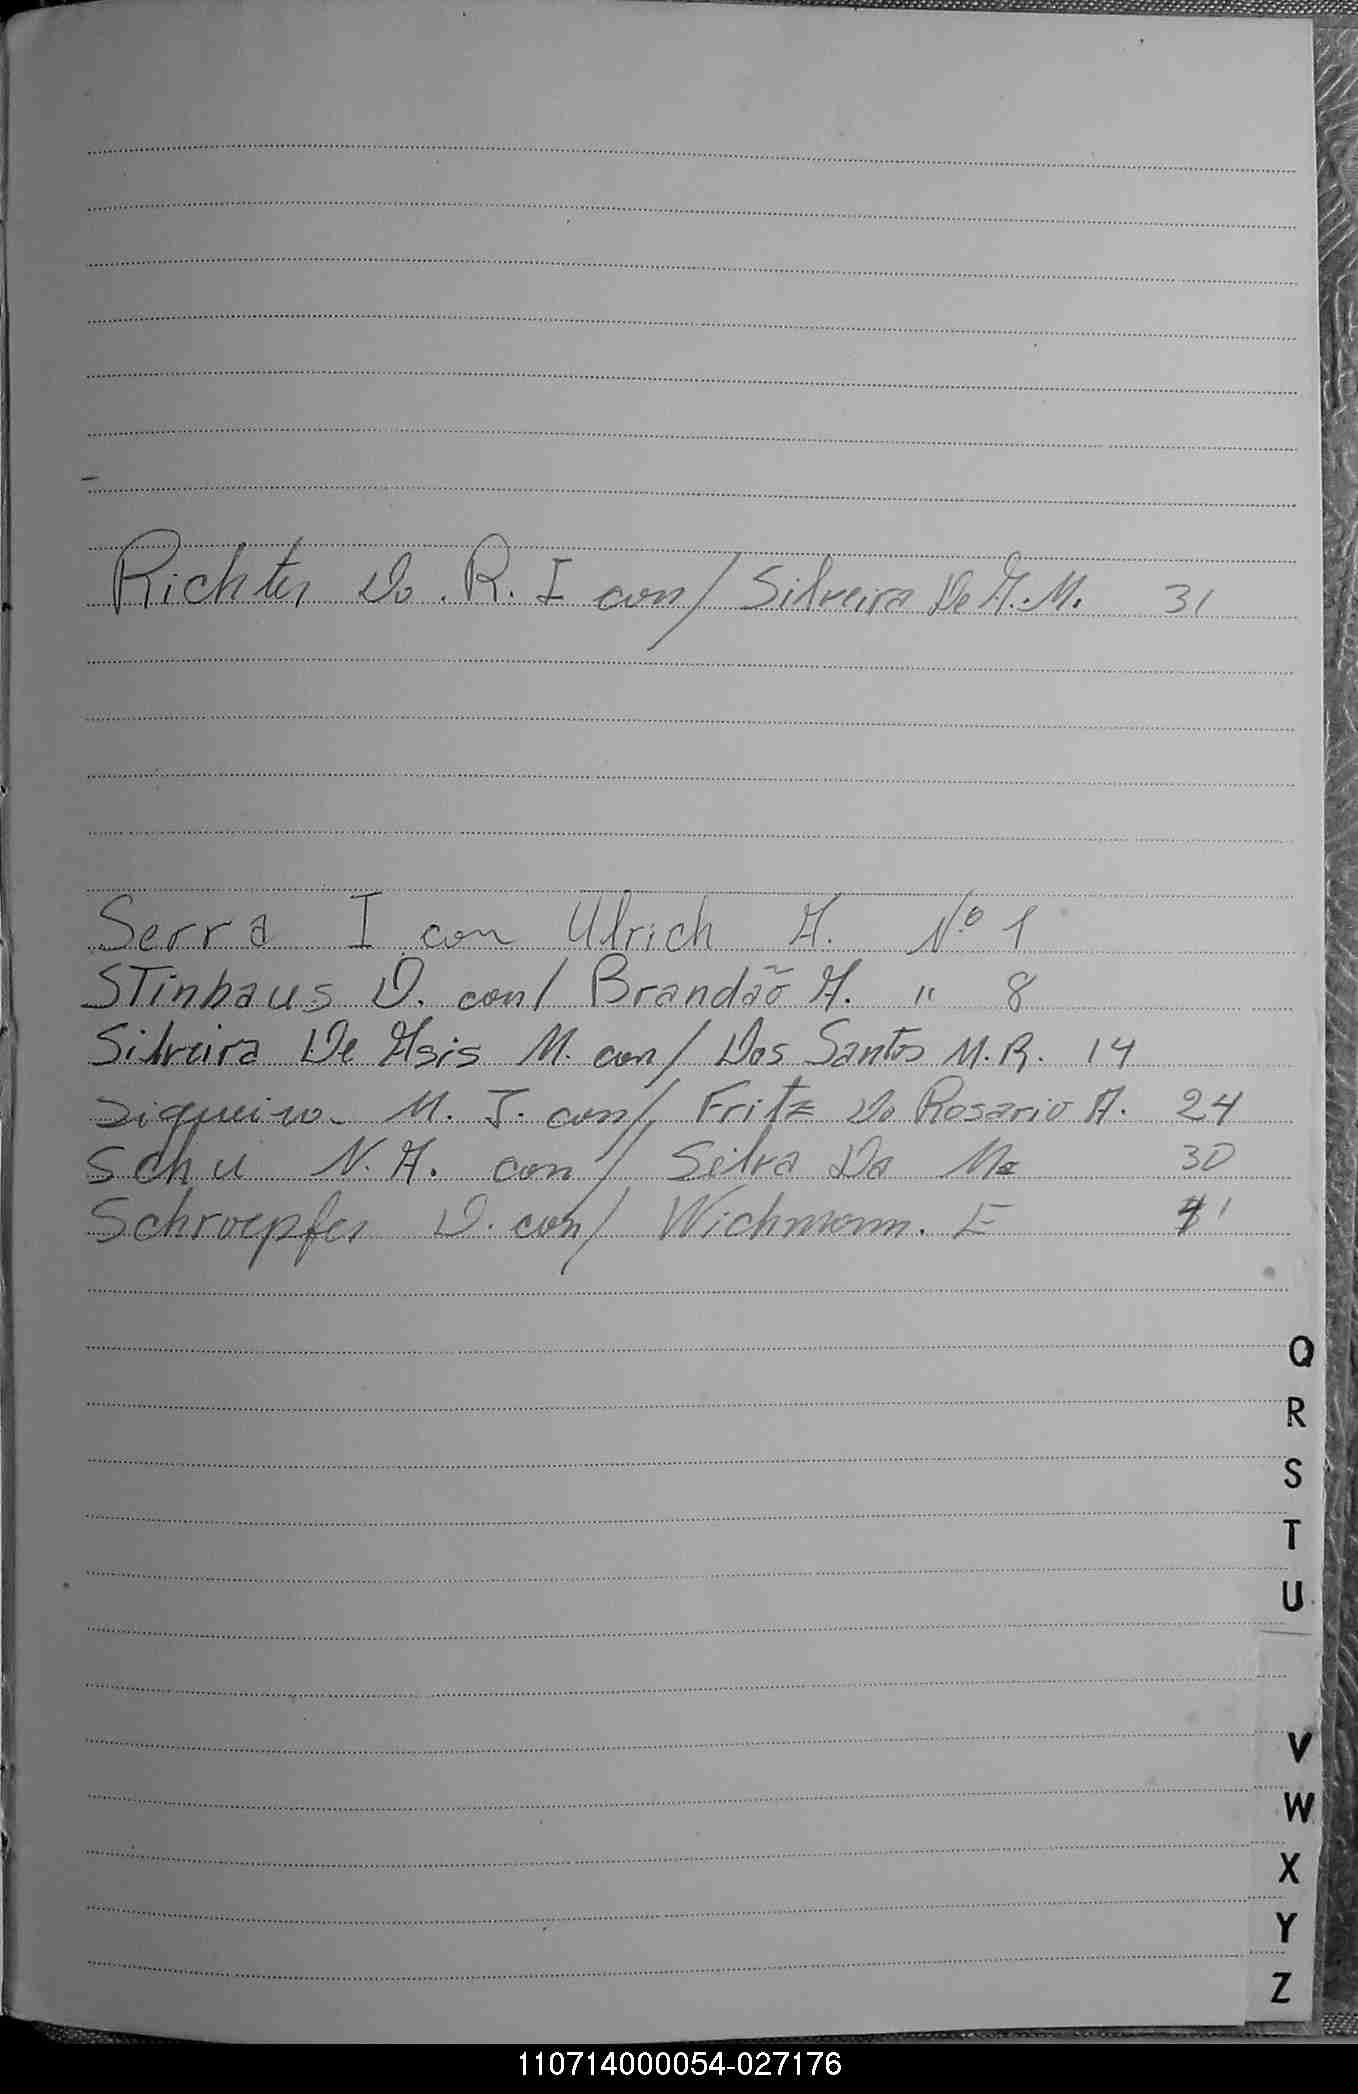 Richter Do. R. I con/ Silveira De A. M. 31
Serra I con Ulrich A. Nº 1
STinhaus D. con/ Brandão A. " 8
Silveira De Asis M. con/ Dos Santos M. R. 14
Siqueira M. J. con/ Fritz Do Rosario A. 24
Schu N. A. con/ Silva Da 30
Schroepfer D. con/ Wichmann. E
Q
R
S
T
U
V
W
X
Y
Z
110714000054-027176